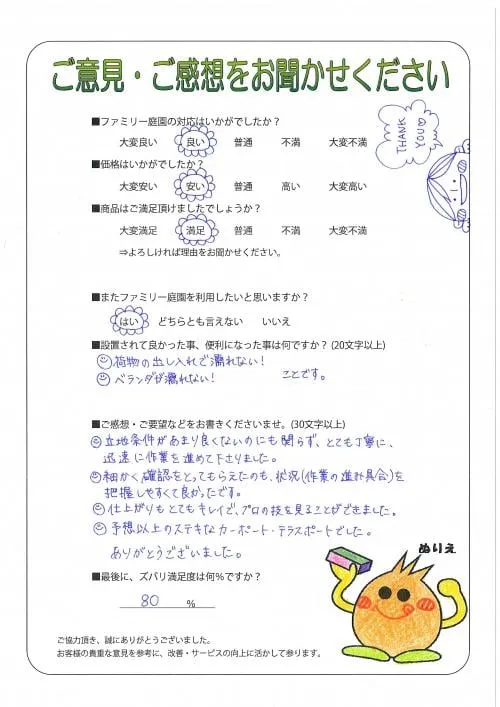 ご意見・ご感想をお聞かせください
■ファミリー庭園の対応はいかがでしたか？
大変良い 良い 普通 不満 大変不満
THANK
YOU♡
■価格はいかがでしたか？
大変安い 安い 普通 高い 大変高い
■商品はご満足頂けましたでしょうか？
大変満足 満足 普通 不満 大変不満
⇒よろしければ理由をお聞かせください。
■またファミリー庭園を利用したいと思いますか？
はい どちらとも言えない いいえ
■設置されて良かった事、便利になった事は何ですか？(20文字以上)
荷物の出し入れで濡れない！
ベランダが濡れない！ ことです。
■ご感想・ご要望などをお書きくださいませ。(30文字以上)
立地条件があまり良くないのにも関らず、とても丁寧に、
迅速に作業を進めて下さりました。
細かく確認をとってもらえたのも、状況(作業の進み具合)を
把握しやすくて良かったです。
仕上がりもとてもキレイで、プロの技を見ることができました。
予想以上のステキなカーポート・テラスポートでした。
ありがとうございました。
ぬりえ
■最後に、ズバリ満足度は何％ですか？
80 ％
ご協力頂き、誠にありがとうございました。
お客様の貴重な意見を参考に、改善・サービスの向上に活かして参ります。